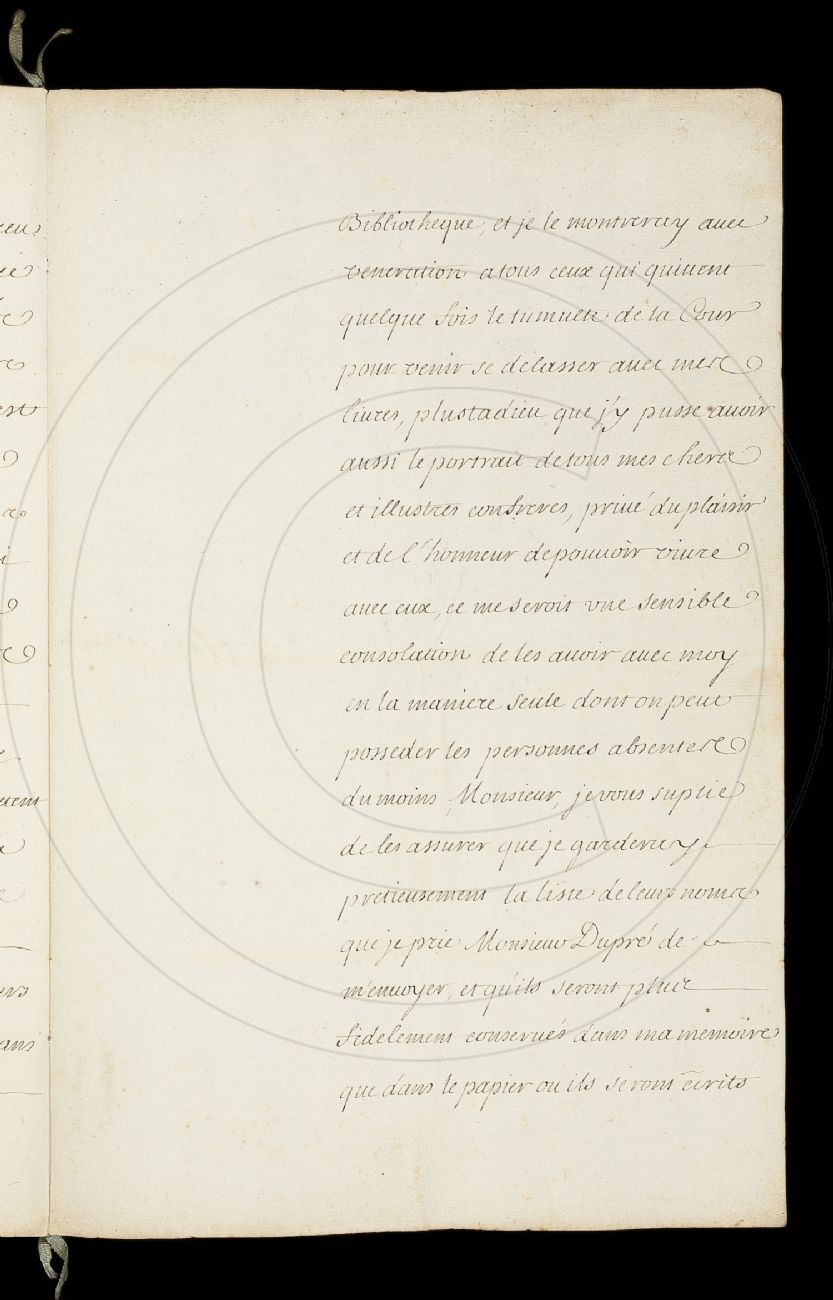 Bibliotheque, et je le montreray avec
veneration a tous ceux qui quittent
quelque fois le tumulte de la Cour
pour venir se délasser avec mes
livres, plust a dieu que j'y pusse avoir
aussi le portrait de tous mes chers
et illustres confreres, privé du plaisir
et de l'honneur de pouvoir vivre
avec eux, ce me seroit vne sensible
consolation de les avoir avec moy
en la maniere seule dont on peut
posseder les personnes absentes
du moins Monsieur, je vous suplie
de les assurer que je garderay
pretieusement la liste de leurs noms
que je prie Monsieur Dupré de
m'envoyer, et qu'ils seront plus
fidelement conservés dans ma memoire
que dans le papier ou ils seront écrits